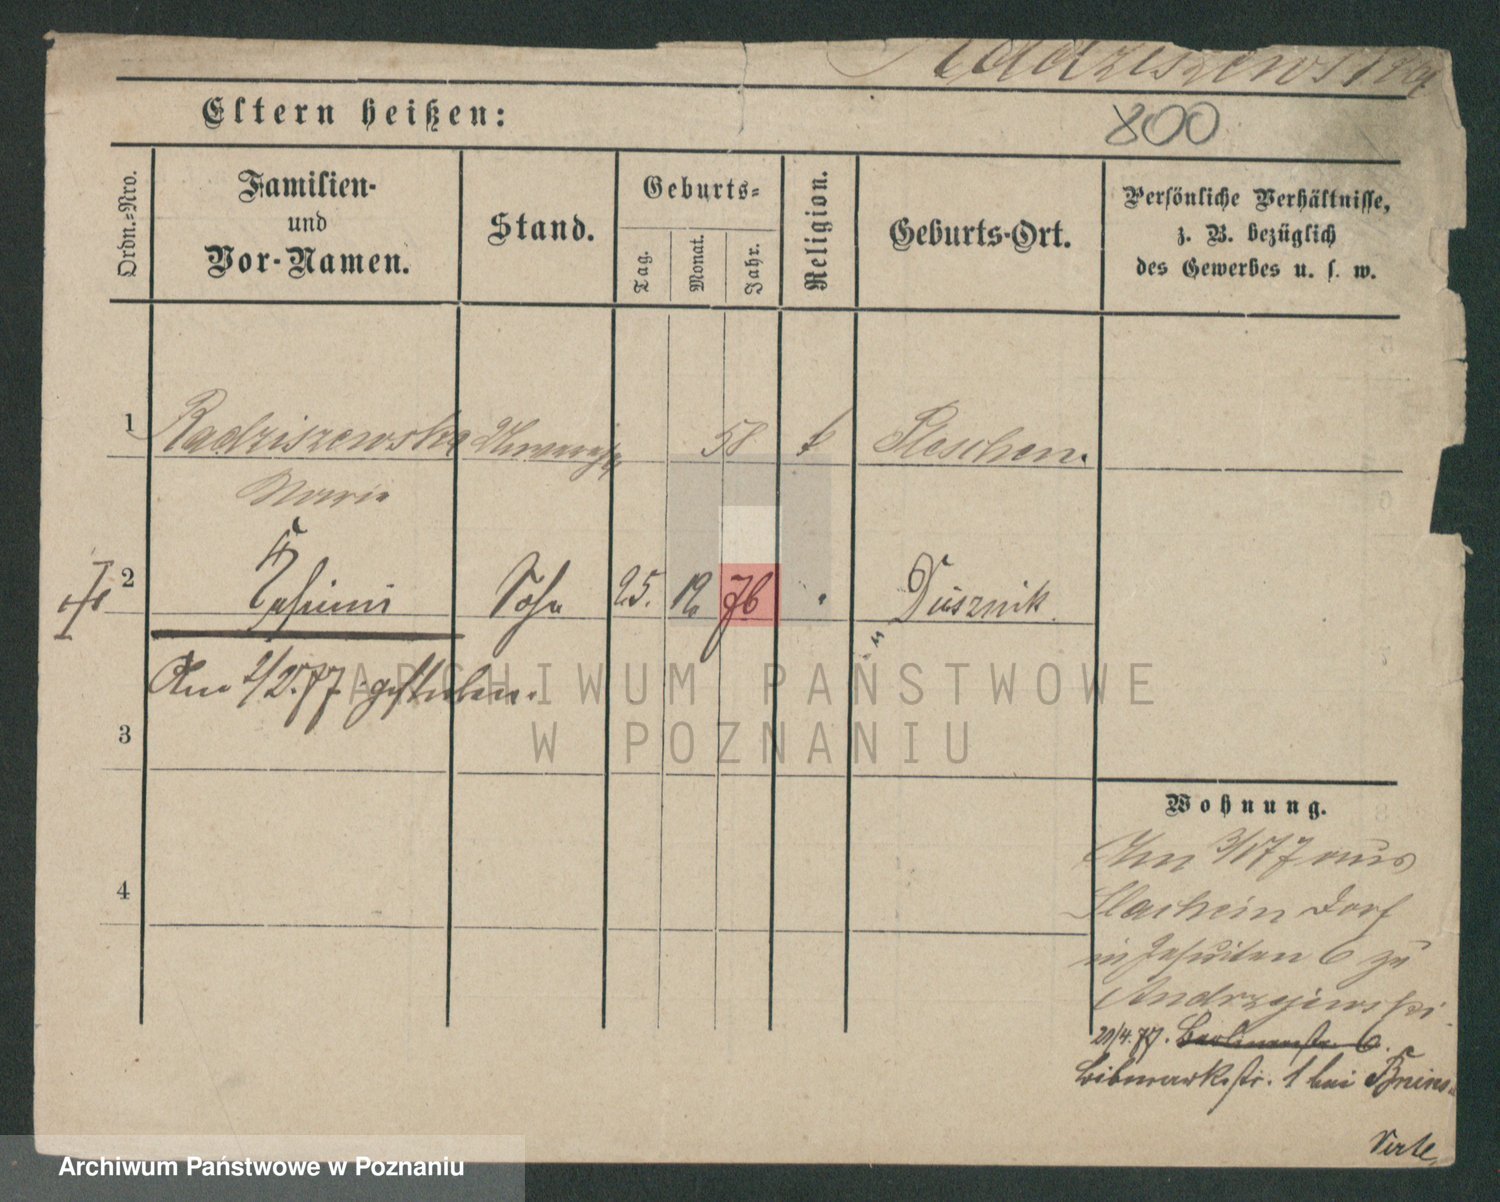 Radziszewska
800
Eltern heißen:
Ordn.-Nro.
Familien-
und
Vor-Namen.
Stand.
Geburts-
Tag.
Monat.
Jahr.
Religion.
Geburts-Ort.
Persönliche Verhältnisse,
z. B. bezüglich
des Gewerbes u. s. w.
1 Radziszewska 58 k Pleschen.
Marie
2 Sohn 25. 12 76 Dusznik
Am 2/2.77 gestorben.
3
4
Wohnung.
Am 3/1 77 aus
Dorf
in Jesuiten 6 zu
Andrzejewski.
20/4.77. Berlinerstr. 6.
Bismarkstr. 1 bei
Verte
ARCHIWUM PAŃSTWOWE
W POZNANIU
Archiwum Państwowe w Poznaniu